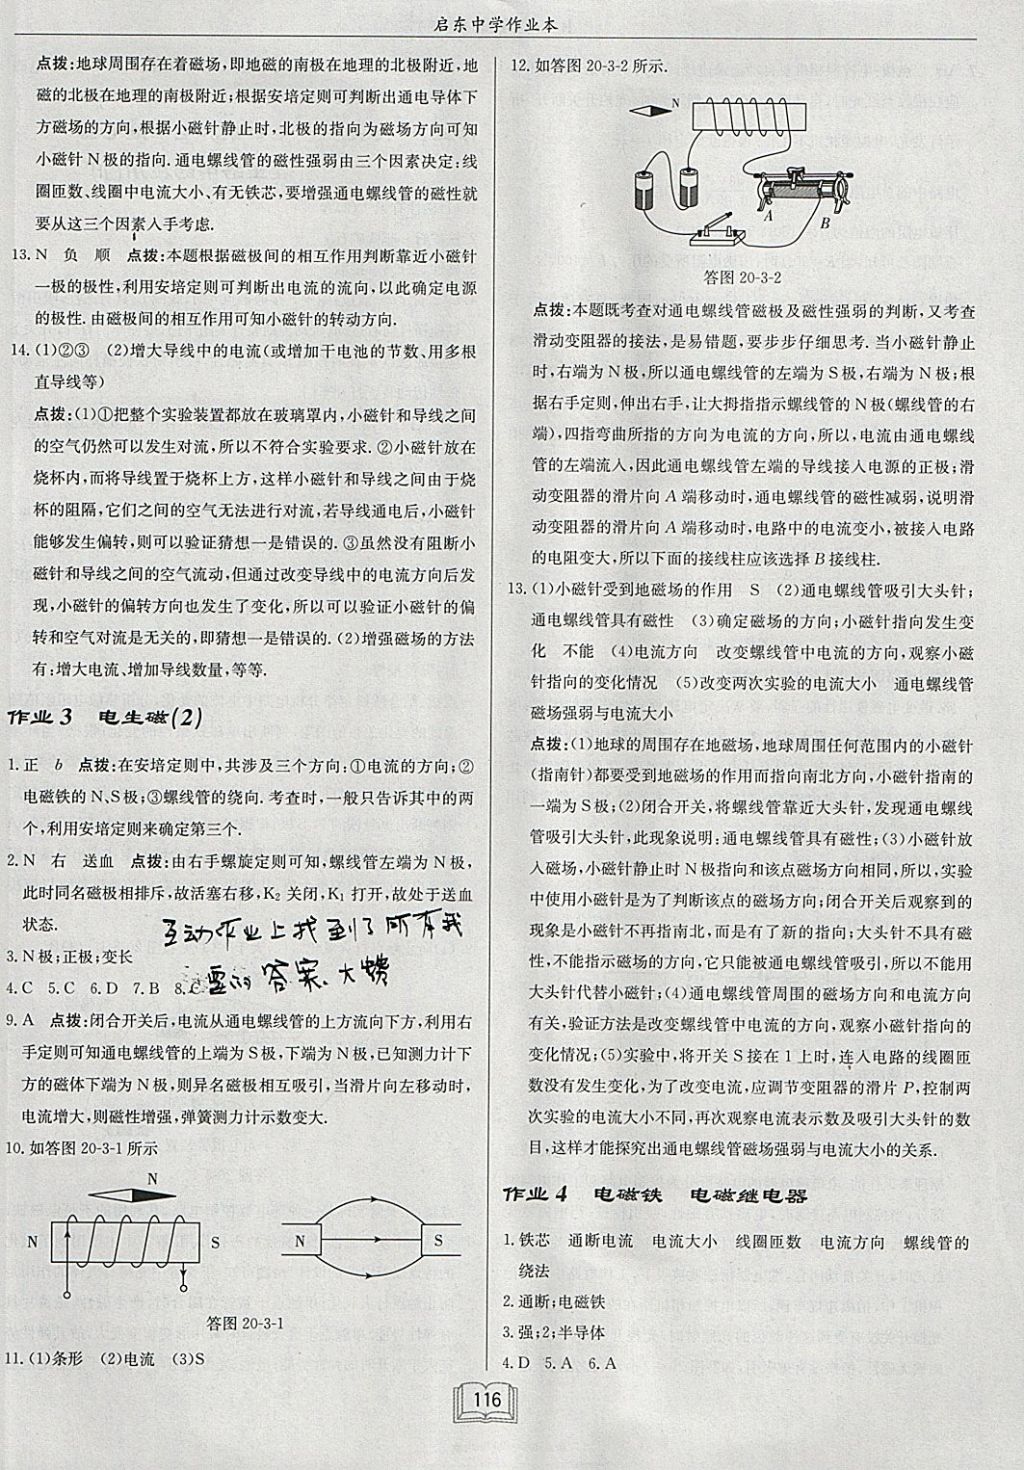 启东中学作业本
点拨:地球周围存在着磁场,即地磁的南极在地理的北极附近,地
磁的北极在地理的南极附近;根据安培定则可判断出通电导体下
方磁场的方向,根据小磁针静止时,北极的指向为磁场方向可知
小磁针N极的指向.通电螺线管的磁性强弱由三个因素决定:线
圈匝数、线圈中电流大小、有无铁芯,要增强通电螺线管的磁性就
要从这三个因素入手考虑.
13.N 负 顺 点拨:本题根据磁极间的相互作用判断靠近小磁针
一极的极性,利用安培定则可判断出电流的流向,以此确定电源
的极性.由磁极间的相互作用可知小磁针的转动方向.
14.(1)②③ (2)增大导线中的电流(或增加干电池的节数、用多根
直导线等)
点拨:(1)①把整个实验装置都放在玻璃罩内,小磁针和导线之间
的空气仍然可以发生对流,所以不符合实验要求.②小磁针放在
烧杯内,而将导线置于烧杯上方,这样小磁针和导线之间由于烧
杯的阻隔,它们之间的空气无法进行对流,若导线通电后,小磁针
能够发生偏转,则可以验证猜想一是错误的.③虽然没有阻断小
磁针和导线之间的空气流动,但通过改变导线中的电流方向后发
现,小磁针的偏转方向也发生了变化,所以可以验证小磁针的偏
转和空气对流是无关的,即猜想一是错误的.(2)增强磁场的方法
有:增大电流、增加导线数量,等等.
作业3 电生磁(2)
1.正 b 点拨:在安培定则中,共涉及三个方向:①电流的方向;②
电磁铁的N、S极;③螺线管的绕向.考查时,一般只告诉其中的两
个,利用安培定则来确定第三个.
2.N 右 送血 点拨:由右手螺旋定则可知,螺线管左端为N极,
此时同名磁极相排斥,故活塞右移,K₂关闭,K₁打开,故处于送血
状态.
互动作业上找到了所有我
3.N极;正极;变长
4.C 5.C 6.D 7.B 8.C
需的答案、大赞
9.A 点拨:闭合开关后,电流从通电螺线管的上方流向下方,利用右
手定则可知通电螺线管的上端为S极,下端为N极,已知测力计下
方的磁体下端为N极,则异名磁极相互吸引,当滑片向左移动时,
电流增大,则磁性增强,弹簧测力计示数变大.
10.如答图20-3-1所示
N
N S N S
答图20-3-1
11.(1)条形 (2)电流 (3)S
12.如答图20-3-2所示.
N
A B
答图20-3-2
点拨:本题既考查对通电螺线管磁极及磁性强弱的判断,又考查
滑动变阻器的接法,是易错题,要步步仔细思考.当小磁针静止
时,右端为N极,所以通电螺线管的左端为S极,右端为N极;根
据右手定则,伸出右手,让大拇指指示螺线管的N极(螺线管的右
端),四指弯曲所指的方向为电流的方向,所以,电流由通电螺线
管的左端流入,因此通电螺线管左端的导线接入电源的正极;滑
动变阻器的滑片向A端移动时,通电螺线管的磁性减弱,说明滑
动变阻器的滑片向A端移动时,电路中的电流变小,被接入电路
的电阻变大,所以下面的接线柱应该选择B接线柱.
13.(1)小磁针受到地磁场的作用 S (2)通电螺线管吸引大头针;
通电螺线管具有磁性 (3)确定磁场的方向;小磁针指向发生变
化 不能 (4)电流方向 改变螺线管中电流的方向,观察小磁
针指向的变化情况 (5)改变两次实验的电流大小 通电螺线管
磁场强弱与电流大小
点拨:(1)地球的周围存在地磁场,地球周围任何范围内的小磁针
(指南针)都要受到地磁场的作用而指向南北方向,小磁针指南的
一端为S极;(2)闭合开关,将螺线管靠近大头针,发现通电螺线
管吸引大头针,此现象说明:通电螺线管具有磁性;(3)小磁针放
入磁场,小磁针静止时N极指向和该点磁场方向相同,所以,实验
中使用小磁针是为了判断该点的磁场方向;闭合开关后观察到的
现象是小磁针不再指南北,而是有了新的指向;大头针不具有磁
性,不能指示磁场的方向,它只能被通电螺线管吸引,所以不能用
大头针代替小磁针;(4)通电螺线管周围的磁场方向和电流方向
有关,验证方法是改变螺线管中电流的方向,观察小磁针指向的
变化情况;(5)实验中,将开关S接在1上时,连入电路的线圈匝
数没有发生变化,为了改变电流,应调节变阻器的滑片P,控制两
次实验的电流大小不同,再次观察电流表示数及吸引大头针的数
目,这样才能探究出通电螺线管磁场强弱与电流大小的关系.
作业4 电磁铁 电磁继电器
1.铁芯 通断电流 电流大小 线圈匝数 电流方向 螺线管的
绕法
2.通断;电磁铁
3.强;2;半导体
4.D 5.A 6.A
116